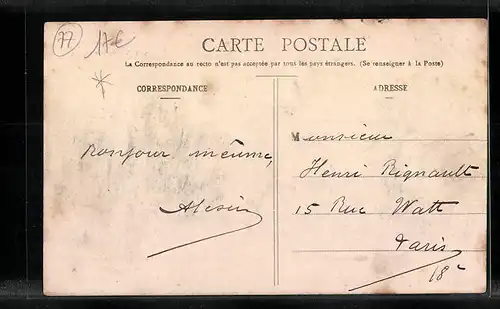 77
17€
CARTE POSTALE
La Correspondance au recto n'est pas acceptée par tout les pays étrangers. (Se renseigner à la Poste)
CORRESPONDANCE
ADRESSE
Monsieur
Henri Rignault
15 Rue Watt
Paris
18e
Bonjour